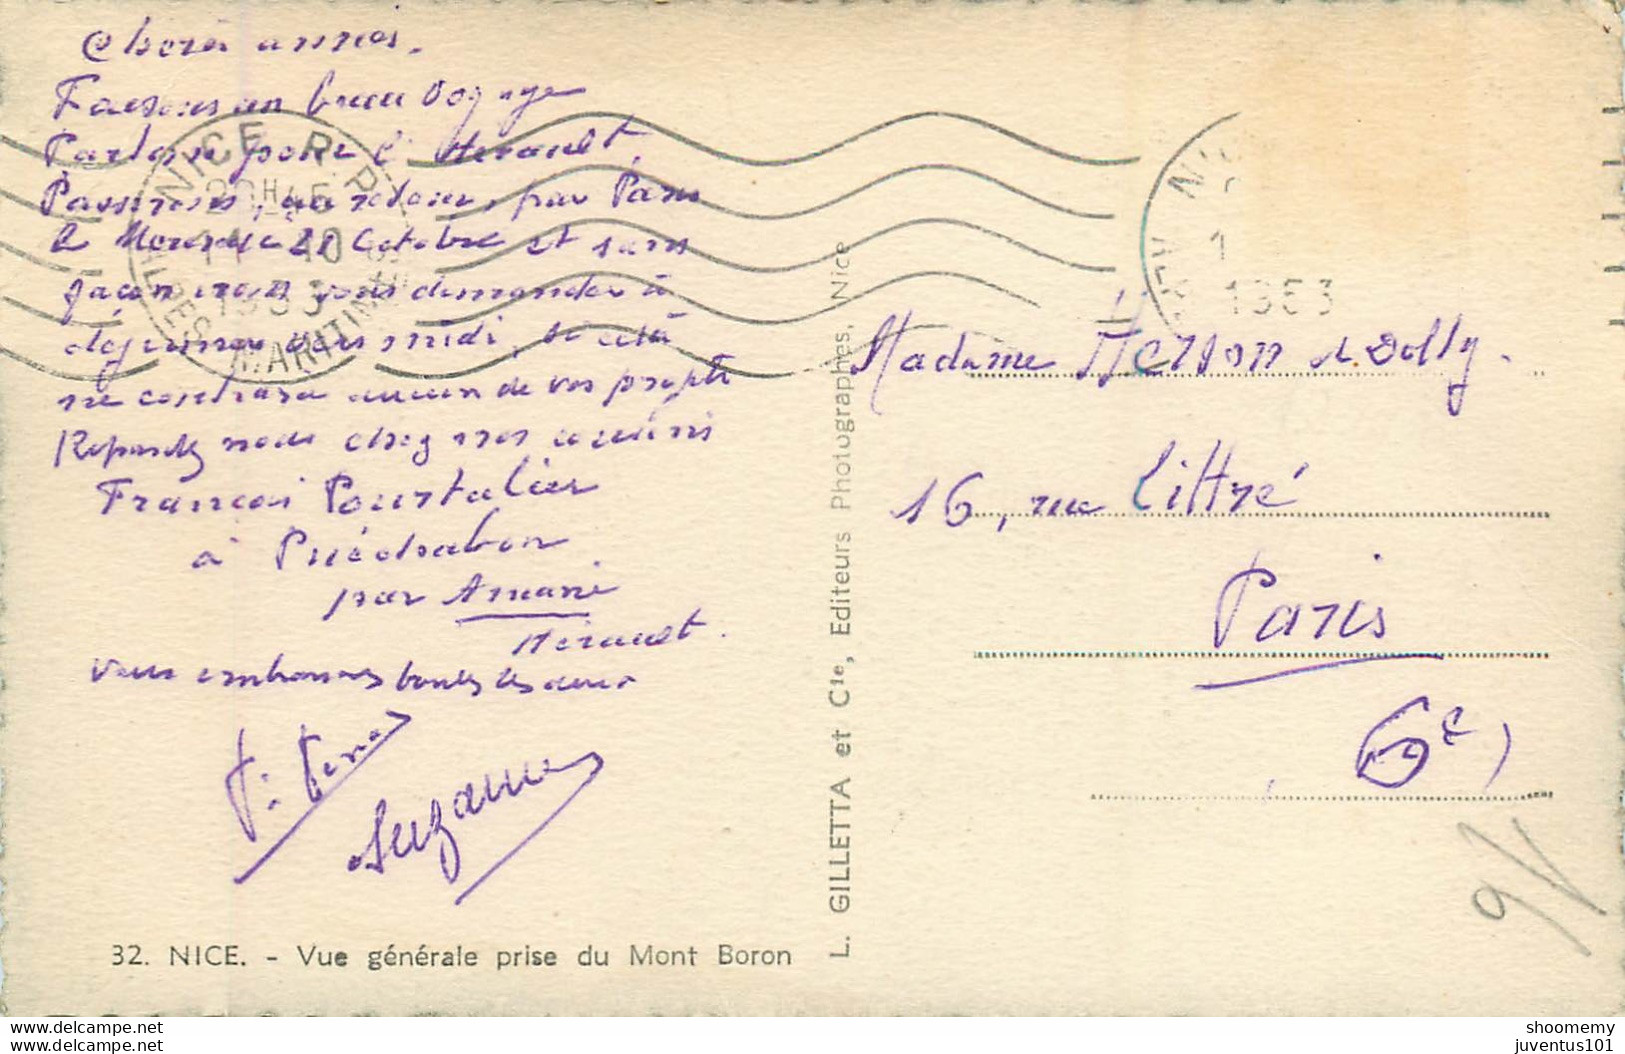 Faisons un beau voyage
Partons pour l'Hérault.
Passerons, au retour, par Paris
le Mercredi 21 Octobre et sans
façon irons vous demander à
déjeuner vers midi, si cela
ne contrarie aucun de vos projets
Répondez nous chez nos cousins
François Pourtalier
à
par Aniane
Hérault.
Vous embrassons toutes les deux
Suzanne
NICE R.P.
20H45
10
1953
ALPES MARITIMES
32. NICE. - Vue générale prise du Mont Boron
L. GILLETTA et Cie, Editeurs Photographes, Nice
1953
Madame et Dolly.
16, rue Littré
Paris
6e
www.delcampe.net
www.delcampe.net
shoomemy
juventus101